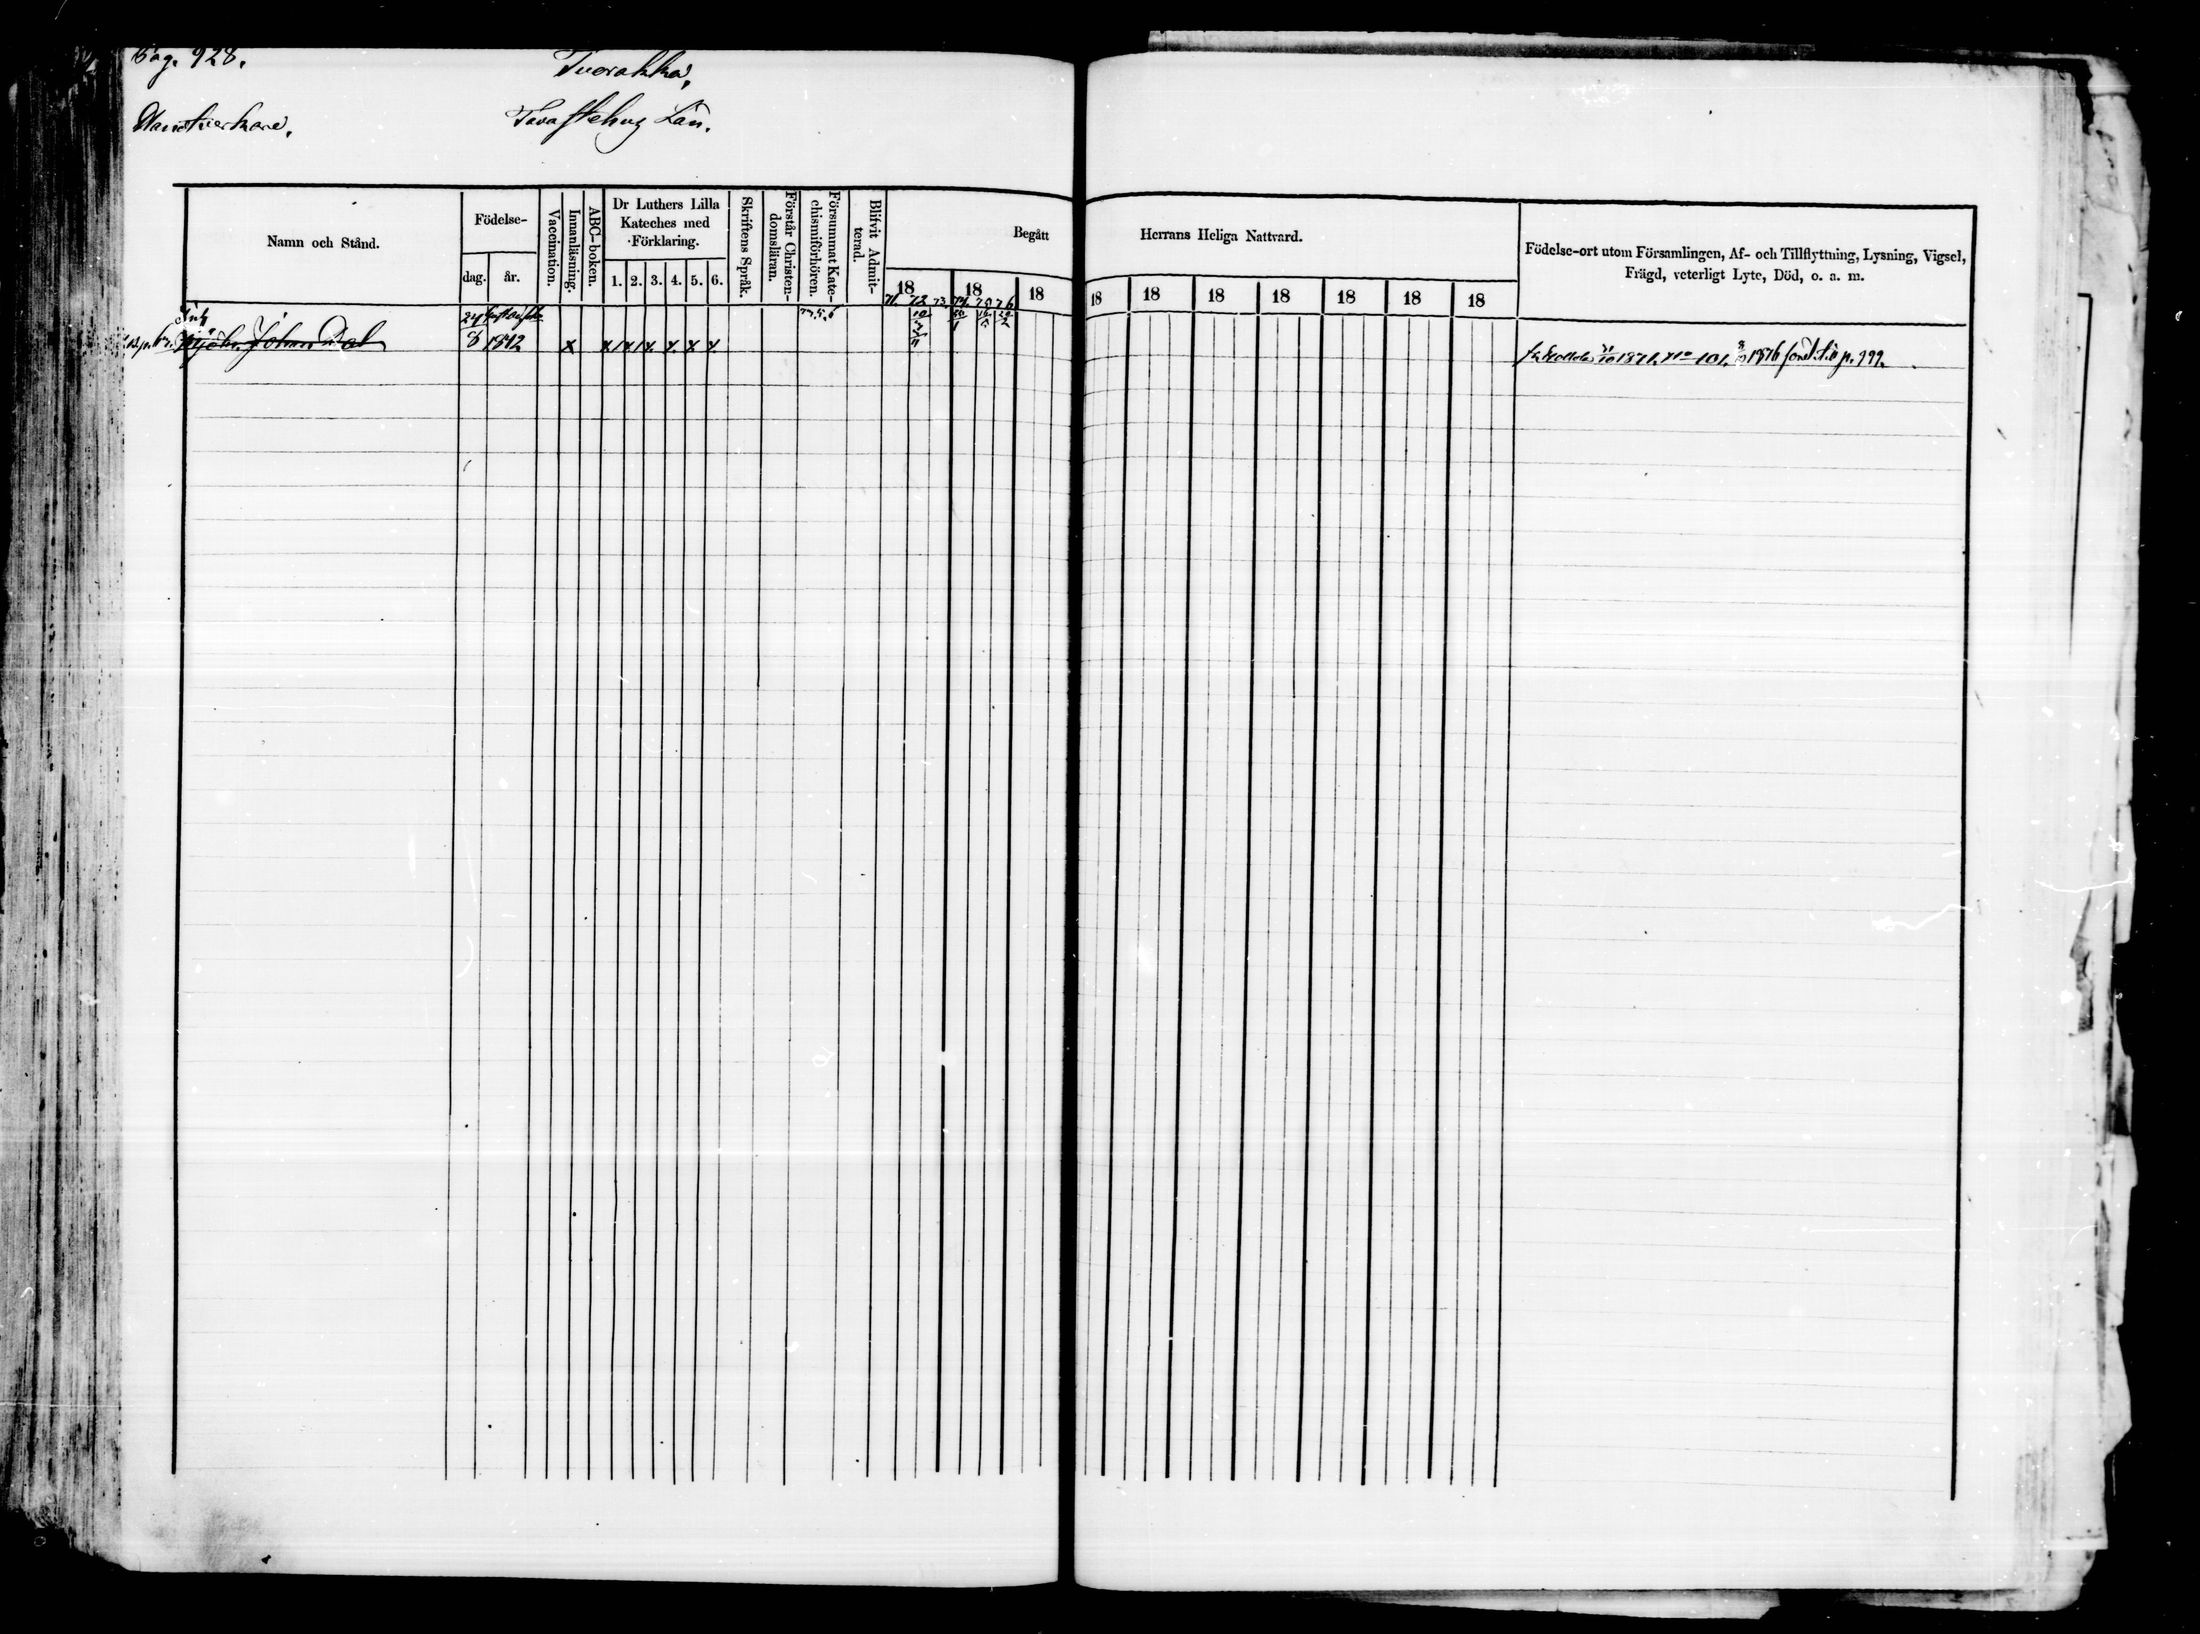 Pag. 928.
Tuorakka,
Handtverkare.
Tavastehus Län.
Namn och Stånd.
Födelse-
dag. år.
Vaccination.
Innanläsning.
ABC-boken.
Dr Luthers Lilla
Kateches med
Förklaring.
1. 2. 3. 4. 5. 6.
Skriftens Språk.
Förstår Christen-
domsläran.
Försummat Kate-
chismiförhören.
Blifvit Admit-
terad.
Begått Herrans Heliga Nattvard.
18 18 18 18 18 18 18 18 18 18
71. 72 73. 74. 75 76
Födelse-ort utom Församlingen, Af- och Tillflyttning, Lysning, Vigsel,
Frägd, veterligt Lyte, Död, o. a. m.
24
8 1842 x x x x x x x
Johan
1871. 101. 1876 p. 999.